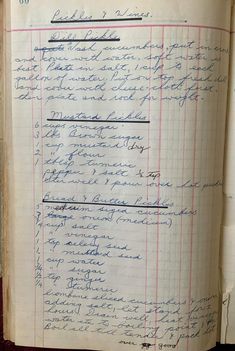 60
Pickles & Wines.
Dill Pickle
Wash cucumbers, put in crock
and cover with water, soft water is
best. Place in salt, 1 cup to each
gallon of water. Put on top fresh dill
and cover with cheese cloth first.
then plate and rock for weight.
Mustard Pickles
6 cups vinegar
3 lbs Brown sugar
1 cup mustard dry
1 " flour
1 tblsp tumeric
pepper & salt ½ tsp
Stir well & pour over
Bread & Butter Pickles
5 medium sized cucumbers
onion (medium)
cup salt
" vinegar
tsp celery seed
" mustard seed
cup water
" sugar
tsp ginger
" tumeric
Combine sliced cucumbers &
adding salt, let stand
hours. Drain well
water etc to boiling point
Boil all till tender & pack
over